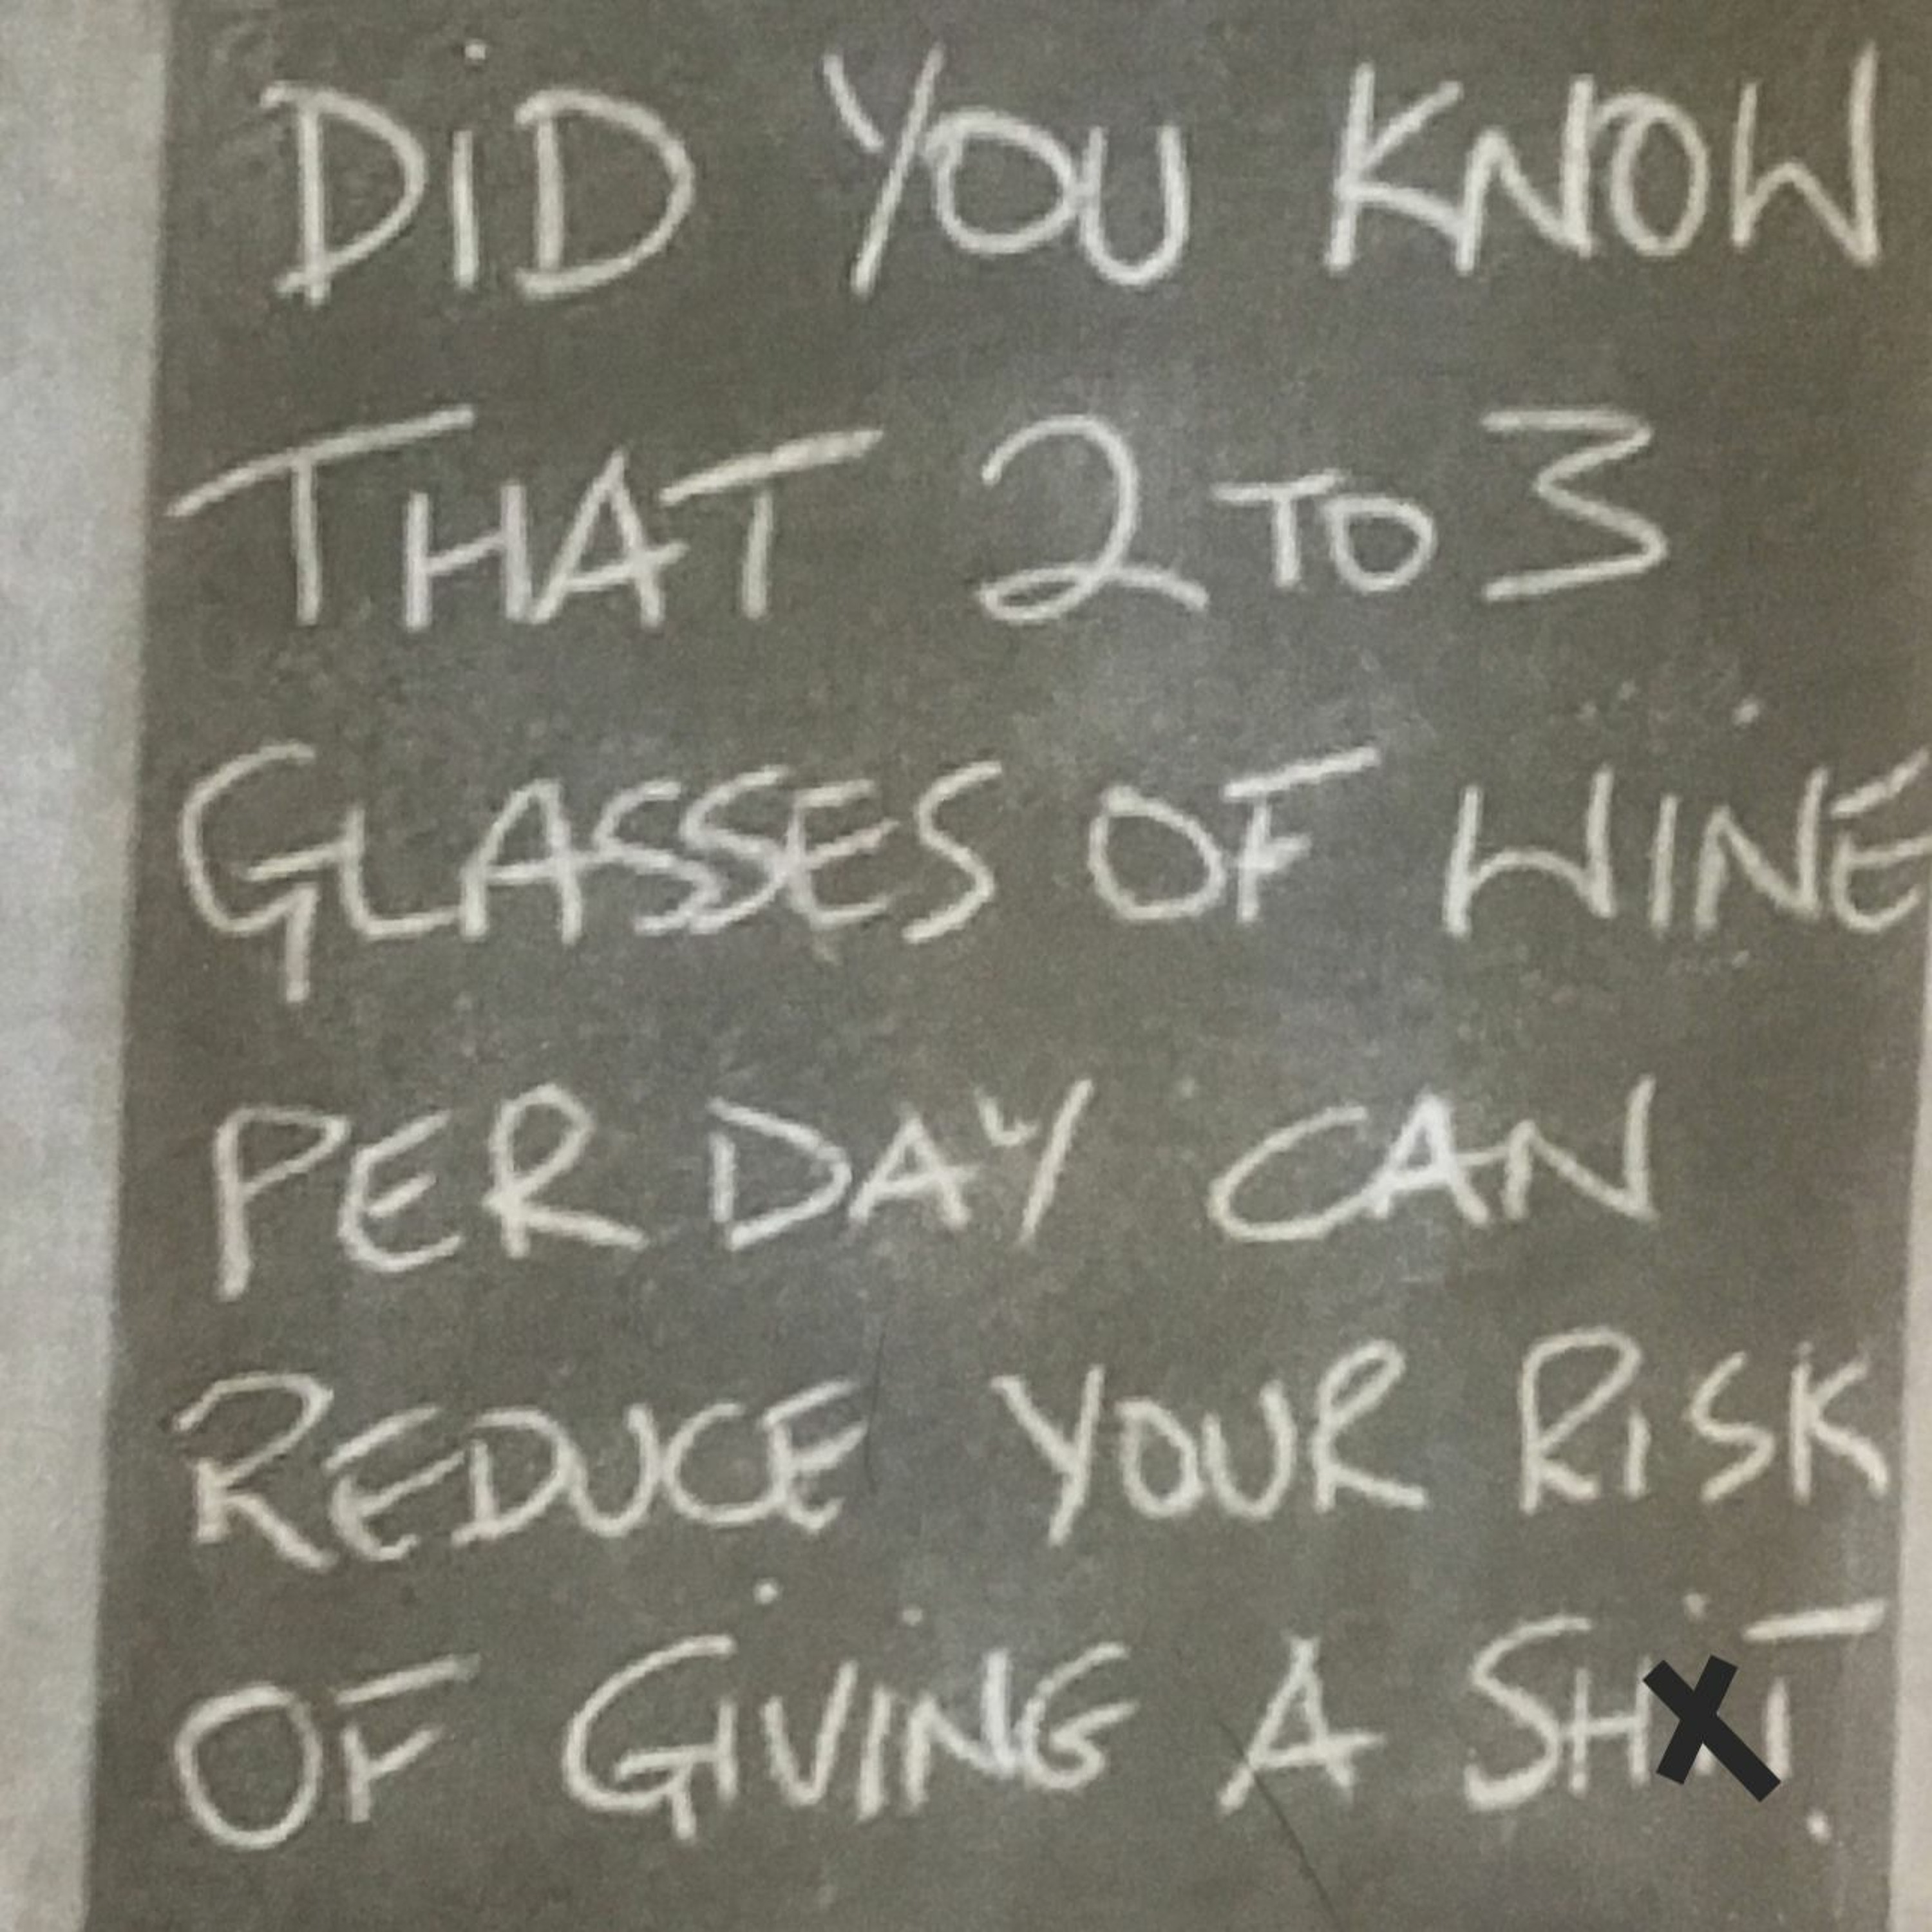 DID YOU KNOW
THAT 2 TO 3
GLASSES OF WINE
PER DAY CAN
REDUCE YOUR RISK
OF GIVING A SHXT.